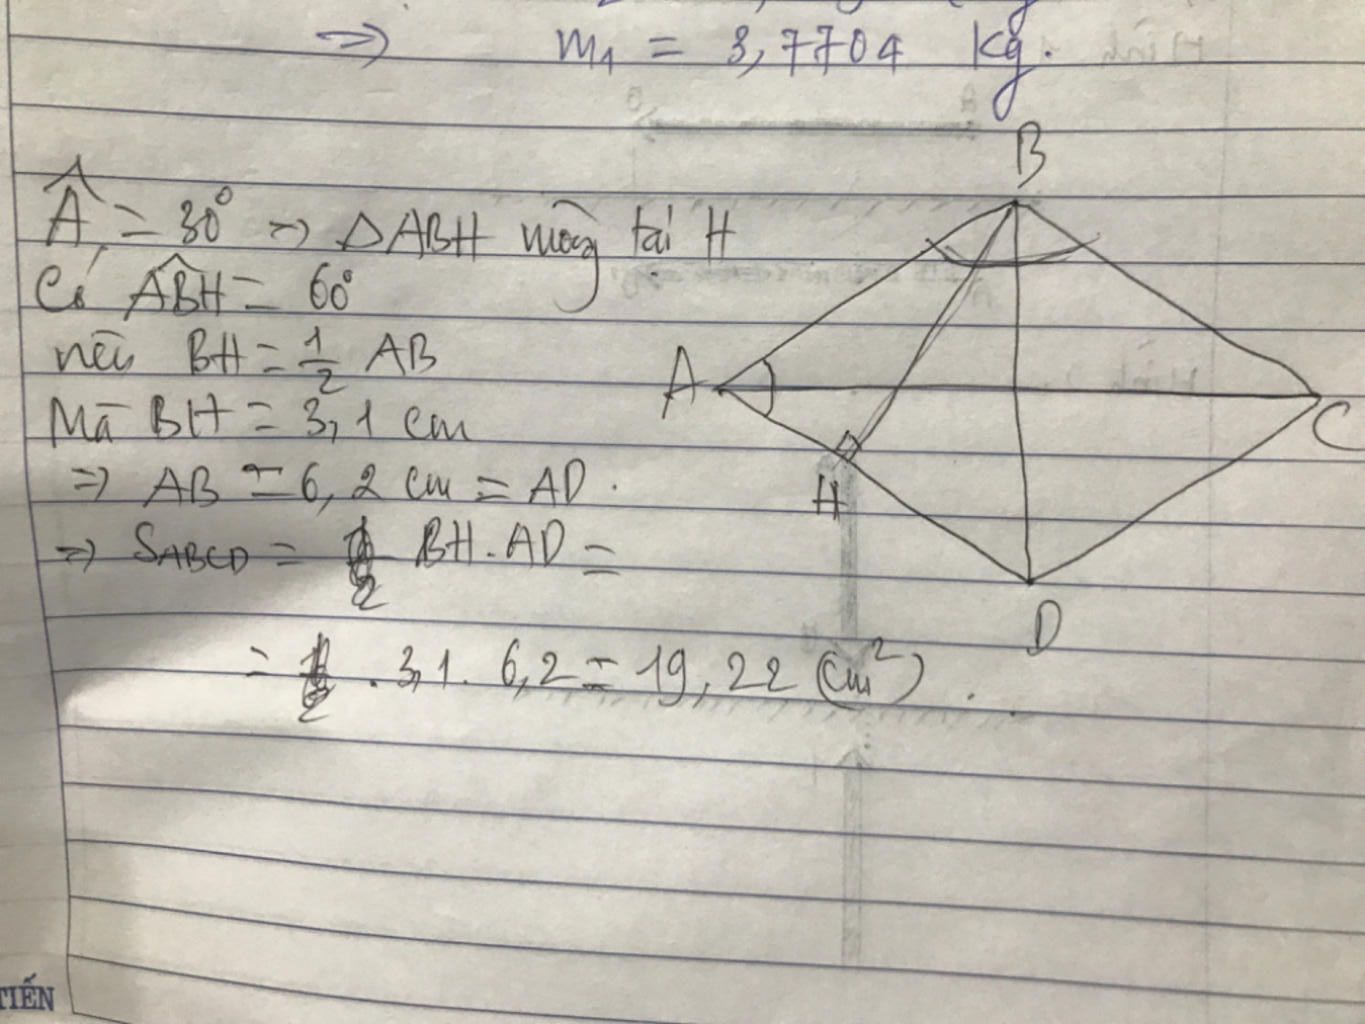 => m₁ = 3,7704 kg.
Â = 30° => ΔABH vuông tại H
Có ABH = 60°
nên BH = 1/2 AB
Mà BH = 3,1 cm
=> AB = 6,2 cm = AD.
=> SABCD = BH.AD =
= . 3,1. 6,2 = 19,22 (cm²).
B
A
C
H
D
TIẾN